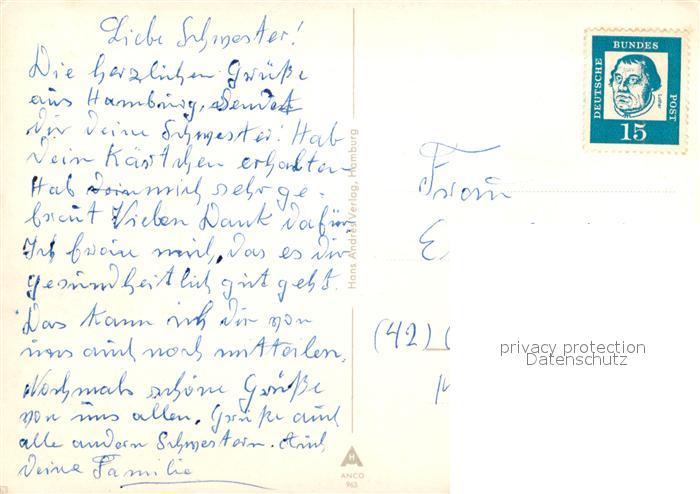 Liebe Schwester!
Die herzlichen Grüße
aus Hamburg, sendet
Dir Deine Schwester! Hab
Dein Kärtchen erhalten
Hab mich sehr ge-
freut Vielen Dank dafür
Ich freue mich, das es dir
gesundheitlich gut geht.
Das kann ich Dir von
uns auch noch mitteilen.
Nochmals schöne Grüße
von uns allen. Grüße auch
alle andern Schwestern. Auch
Deine Familie
Hans Andres Verlag, Hamburg
H
ANCO
963
DEUTSCHE
BUNDES
POST
Luther
15
Frau
E
(42) (
privacy protection
Datenschutz